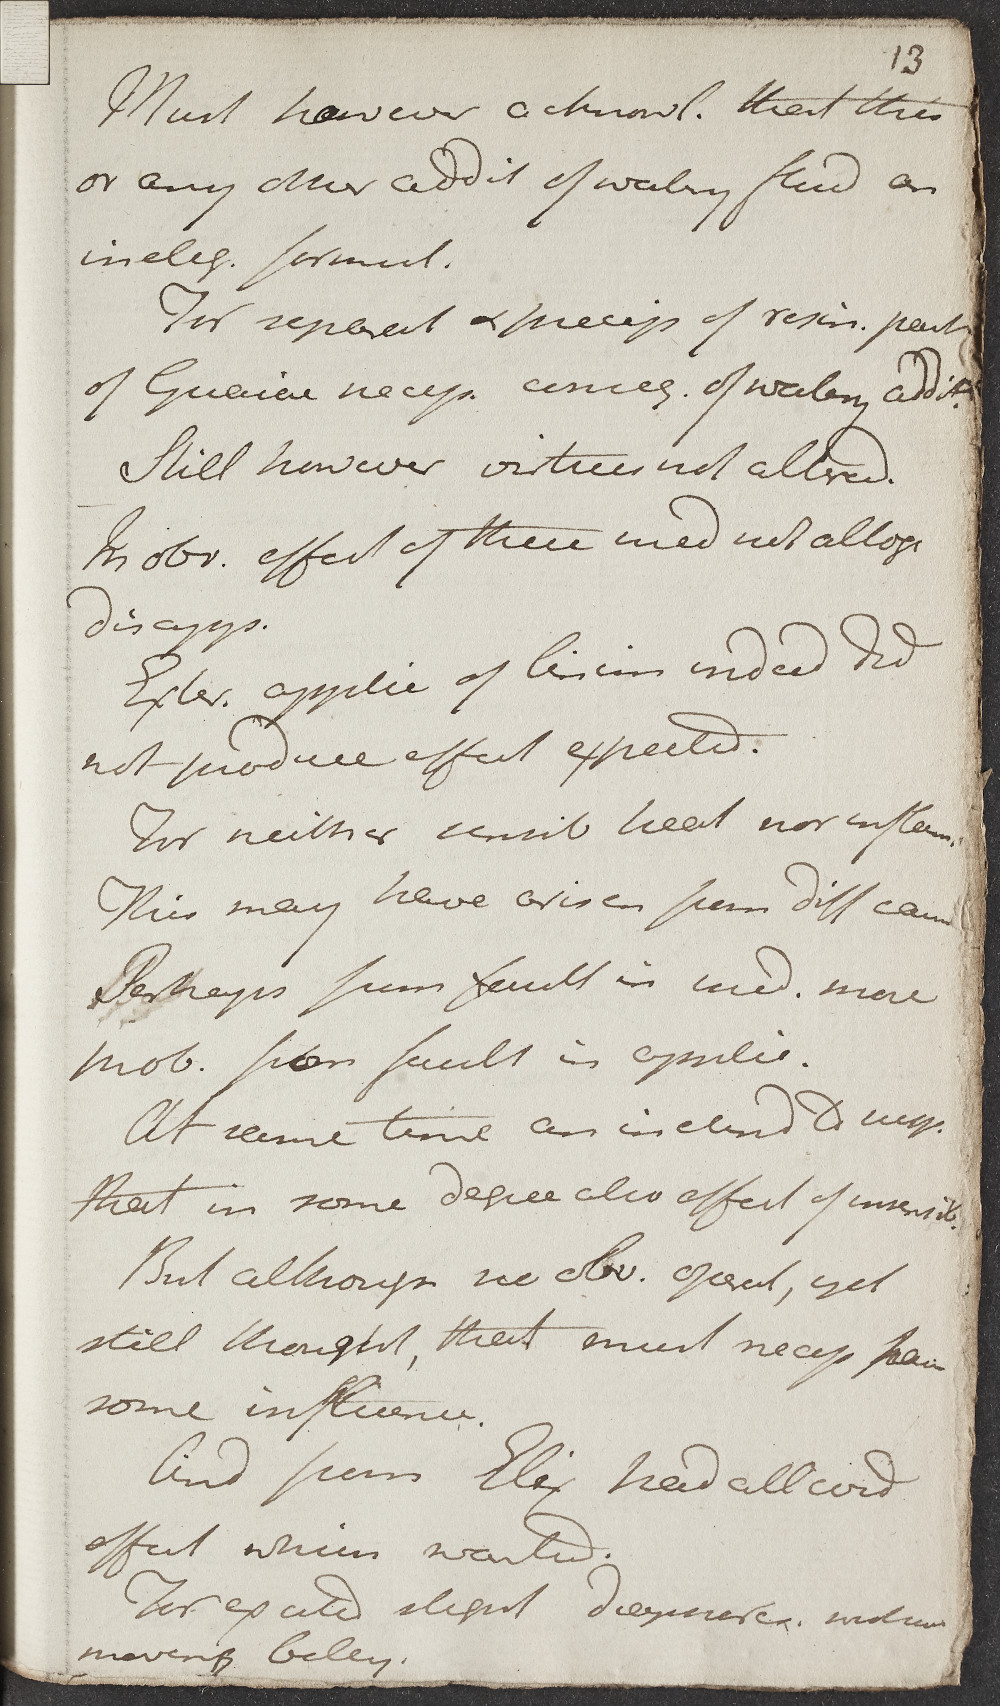 13
Must however acknowl. that this
or any other addit of watery fluid an
ineleg. formul.
For separat & precip of resin. part
of Guaiac necess. conseq. of watery addit.
Still however virtues not altered.
In obv. effect of these med not altog
disapp.
Exter. applic of linim indeed did
not produce effect expected.
For neither sensib heat nor inflam.
This may have arisen from diff caus
Perhaps from fault in med. more
prob. from fault in applic.
At same time an inclined to susp.
that in some degree also effect of insensib.
But although no obv. operat, yet
still thought, that must necess have
some influence.
And from Elix had all cord
effect which wanted.
For excited slight diaphores. without
moving belly.